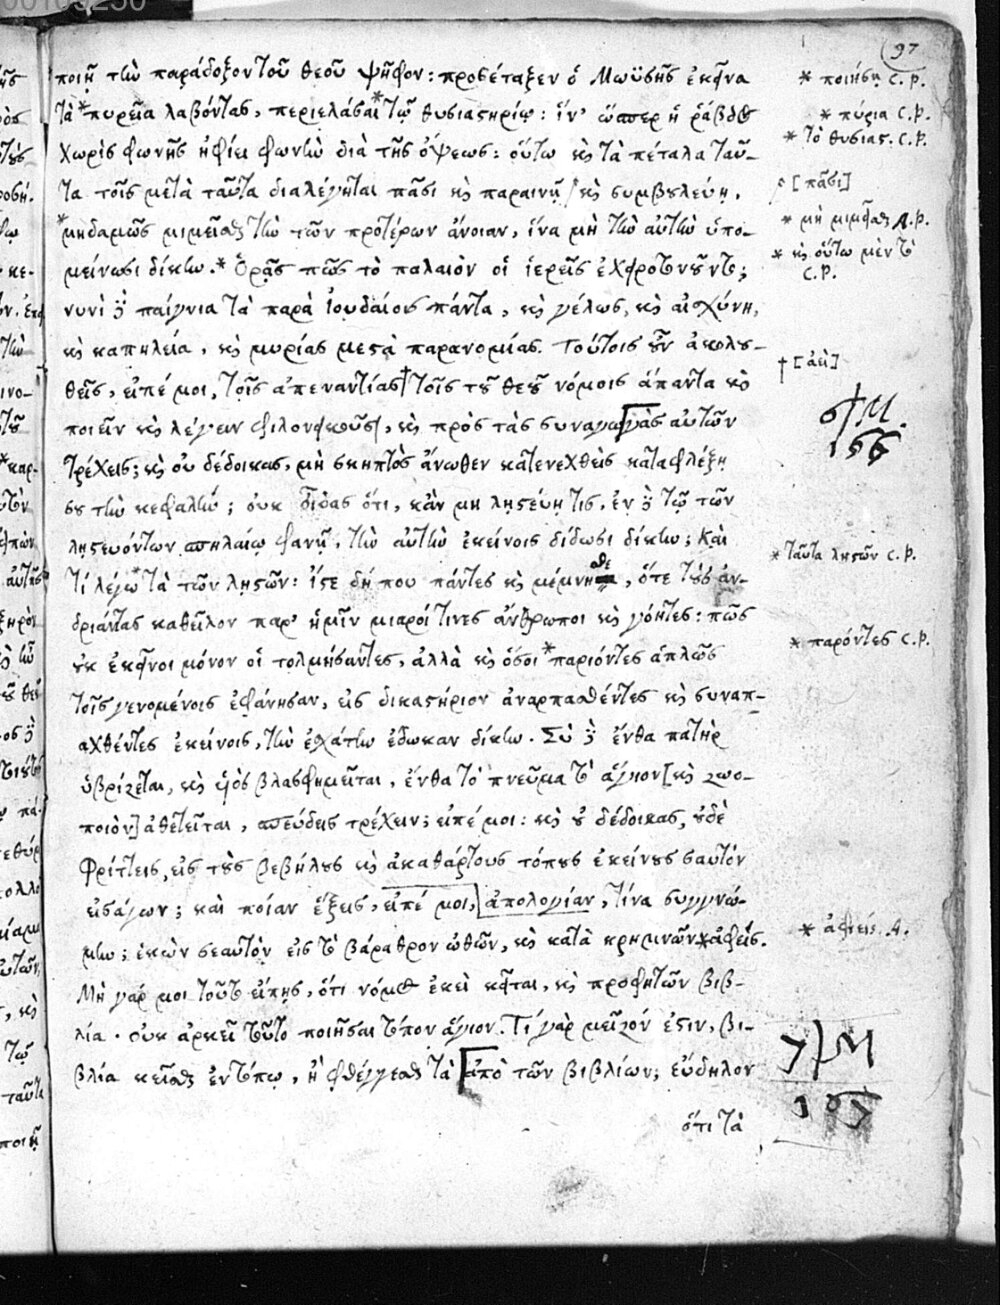 97
ποιῇ τὴν παράδοξον τοῦ θεοῦ ψῆφον: προσέταξεν ὁ Μωϋσῆς ἐκεῖνα
* ποιήσῃ C.P.
τὰ *πυρεῖα λαβόντας, περιελάσαι *τῷ θυσιαστηρίῳ: ἵν' ὥσπερ ἡ ῥάβδος
* πύρια C.P.
* τὸ θυσιασ. C.P.
χωρὶς φωνῆς ἠφίει φωνὴν διὰ τῆς ὄψεως: οὕτω κὶ τὰ πέταλα ταῦ-
τα τοῖς μετὰ ταῦτα διαλέγηται πᾶσι κὶ παραινῇ / κὶ συμβουλεύῃ,
[πᾶσι]
*μηδαμῶς μιμεῖσθαι τὴν τῶν προτέρων ἄνοιαν, ἵνα μὴ τὴν αὐτὴν ὑπο-
* μὴ μιμεῖσθαι A.P.
μείνωσι δίκην.* Ὁρᾷς πῶς τὸ παλαιὸν οἱ ἱερεῖς ἐχειροτονοῦντο;
* κὶ οὕτω μὲν τὸ
C.P.
νυνὶ δὲ παίγνια τὰ παρὰ Ἰουδαίοις πάντα, κὶ γέλως, κὶ αἰσχύνη,
κὶ καπηλεία, κὶ μυρίας μεστὰ παρανομίας. Τούτοις οὖν ἀκολου-
θεῖς, εἰπέ μοι, τοῖς ἀπεναντίας† τοῖς τοῦ θεοῦ νόμοις ἅπαντα κὶ
† [ἀεὶ]
ποιεῖν κὶ λέγειν φιλονεικοῦσι, κὶ πρὸς τὰς συναγωγὰς αὐτῶν
ς/M.
156
τρέχεις; κὶ οὐ δέδοικας, μὴ σκηπτὸς ἄνωθεν κατενεχθεὶς καταφλέξῃ
σου τὴν κεφαλήν; οὐκ οἶδας ὅτι, κἂν μὴ λῃστεύῃ τις, ἐν δὲ τῷ τῶν
λῃστευόντων σπηλαίῳ φανῇ, τὴν αὐτὴν ἐκείνοις δίδωσι δίκην; Καὶ
τί λέγω *τὰ τῶν λῃστῶν: ἴστε δή που πάντες κὶ μέμνησθε, ὅτε τοὺς ἀν-
* ταῦτα λῃστῶν C.P.
δριάντας καθεῖλον παρ' ἡμῖν μιαροί τινες ἄνθρωποι κὶ γόητες: πῶς
οὐκ ἐκεῖνοι μόνον οἱ τολμήσαντες, ἀλλὰ κὶ ὅσοι *παριόντες ἁπλῶς
* παρόντες C.P.
τοῖς γενομένοις ἐφάνησαν, εἰς δικαστήριον ἀναρπασθέντες κὶ συναπ-
αχθέντες ἐκείνοις, τὴν ἐσχάτην ἔδωκαν δίκην. Σὺ δὲ ἔνθα πατὴρ
ὑβρίζεται, κὶ υἱὸς βλασφημεῖται, ἔνθα τὸ πνεῦμα τὸ ἅγιον [κὶ ζωο-
ποιὸν] ἀθετεῖται, σπεύδεις τρέχειν; εἰπέ μοι: κὶ οὐ δέδοικας, οὐδὲ
φρίττεις, εἰς τοὺς βεβήλους κὶ ἀκαθάρτους τόπους ἐκείνους σαυτὸν
εἰσάγων; καὶ ποίαν ἕξεις, εἰπέ μοι, ἀπολογίαν, τίνα συγγνώ-
μην; ἑκὼν σεαυτὸν εἰς τὸ βάραθρον ὠθῶν, κὶ κατὰ κρημνῶν *ἀφείς.
* ἀφιείς. A.
Μὴ γάρ μοι τοῦτο εἴπῃς, ὅτι νόμος ἐκεῖ κεῖται, κὶ προφητῶν βιβ-
λία. οὐκ ἀρκεῖ τοῦτο ποιῆσαι τόπον ἅγιον. Τί γὰρ μεῖζόν ἐστιν, βι-
βλία κεῖσθαι ἐν τόπῳ, ἢ φθέγγεσθαι τὰ ἀπὸ τῶν βιβλίων; εὔδηλον
γ/M
157
ὅτι τὰ